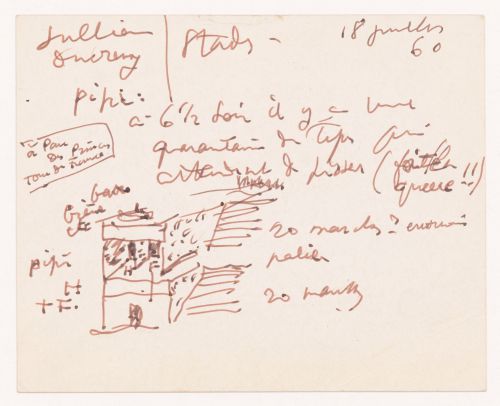 Jullian
Ducreux
Stade -
18 juillet
60
pipi:
à 6 h 1/2 soir il y a une
quarantaine de types qui
attendent de pisser (
queue !!)
au Parc
des Princes
Tour de France
bar
bière
pipi
H
+ F.
20 marches ?
palier
20 marches